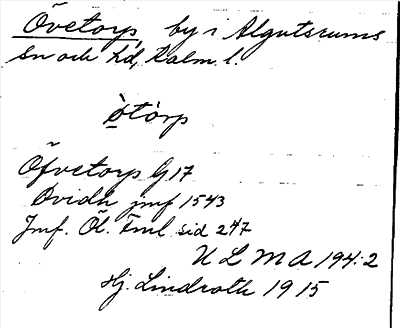 Övetorp, by i Algutsrums
sn och hd, Kalm. l.
òtórp
Öfvetorp G 17
Ovidh jmf 1543
Jmf. Öl. Fml sid 247
U L M A 194:2
Hj. Lindroth 1915